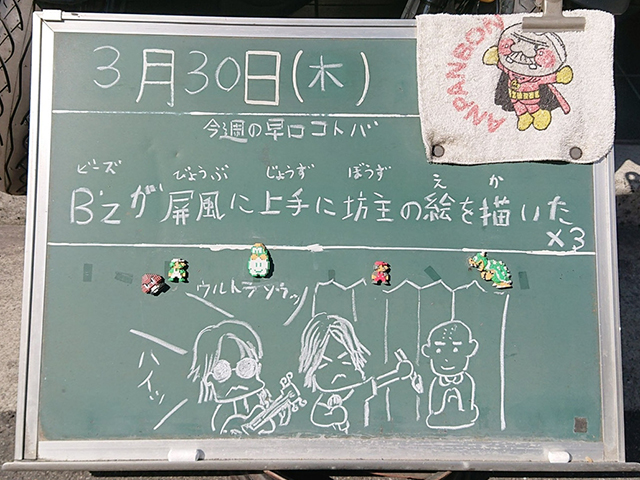 3月30日(木)
ANPANBON
今週の早口コトバ
ビーズ びょうぶ じょうず ぼうず え か
B'zが屏風に上手に坊主の絵を描いた
×3
ウルトラソウルッ
ハイッ